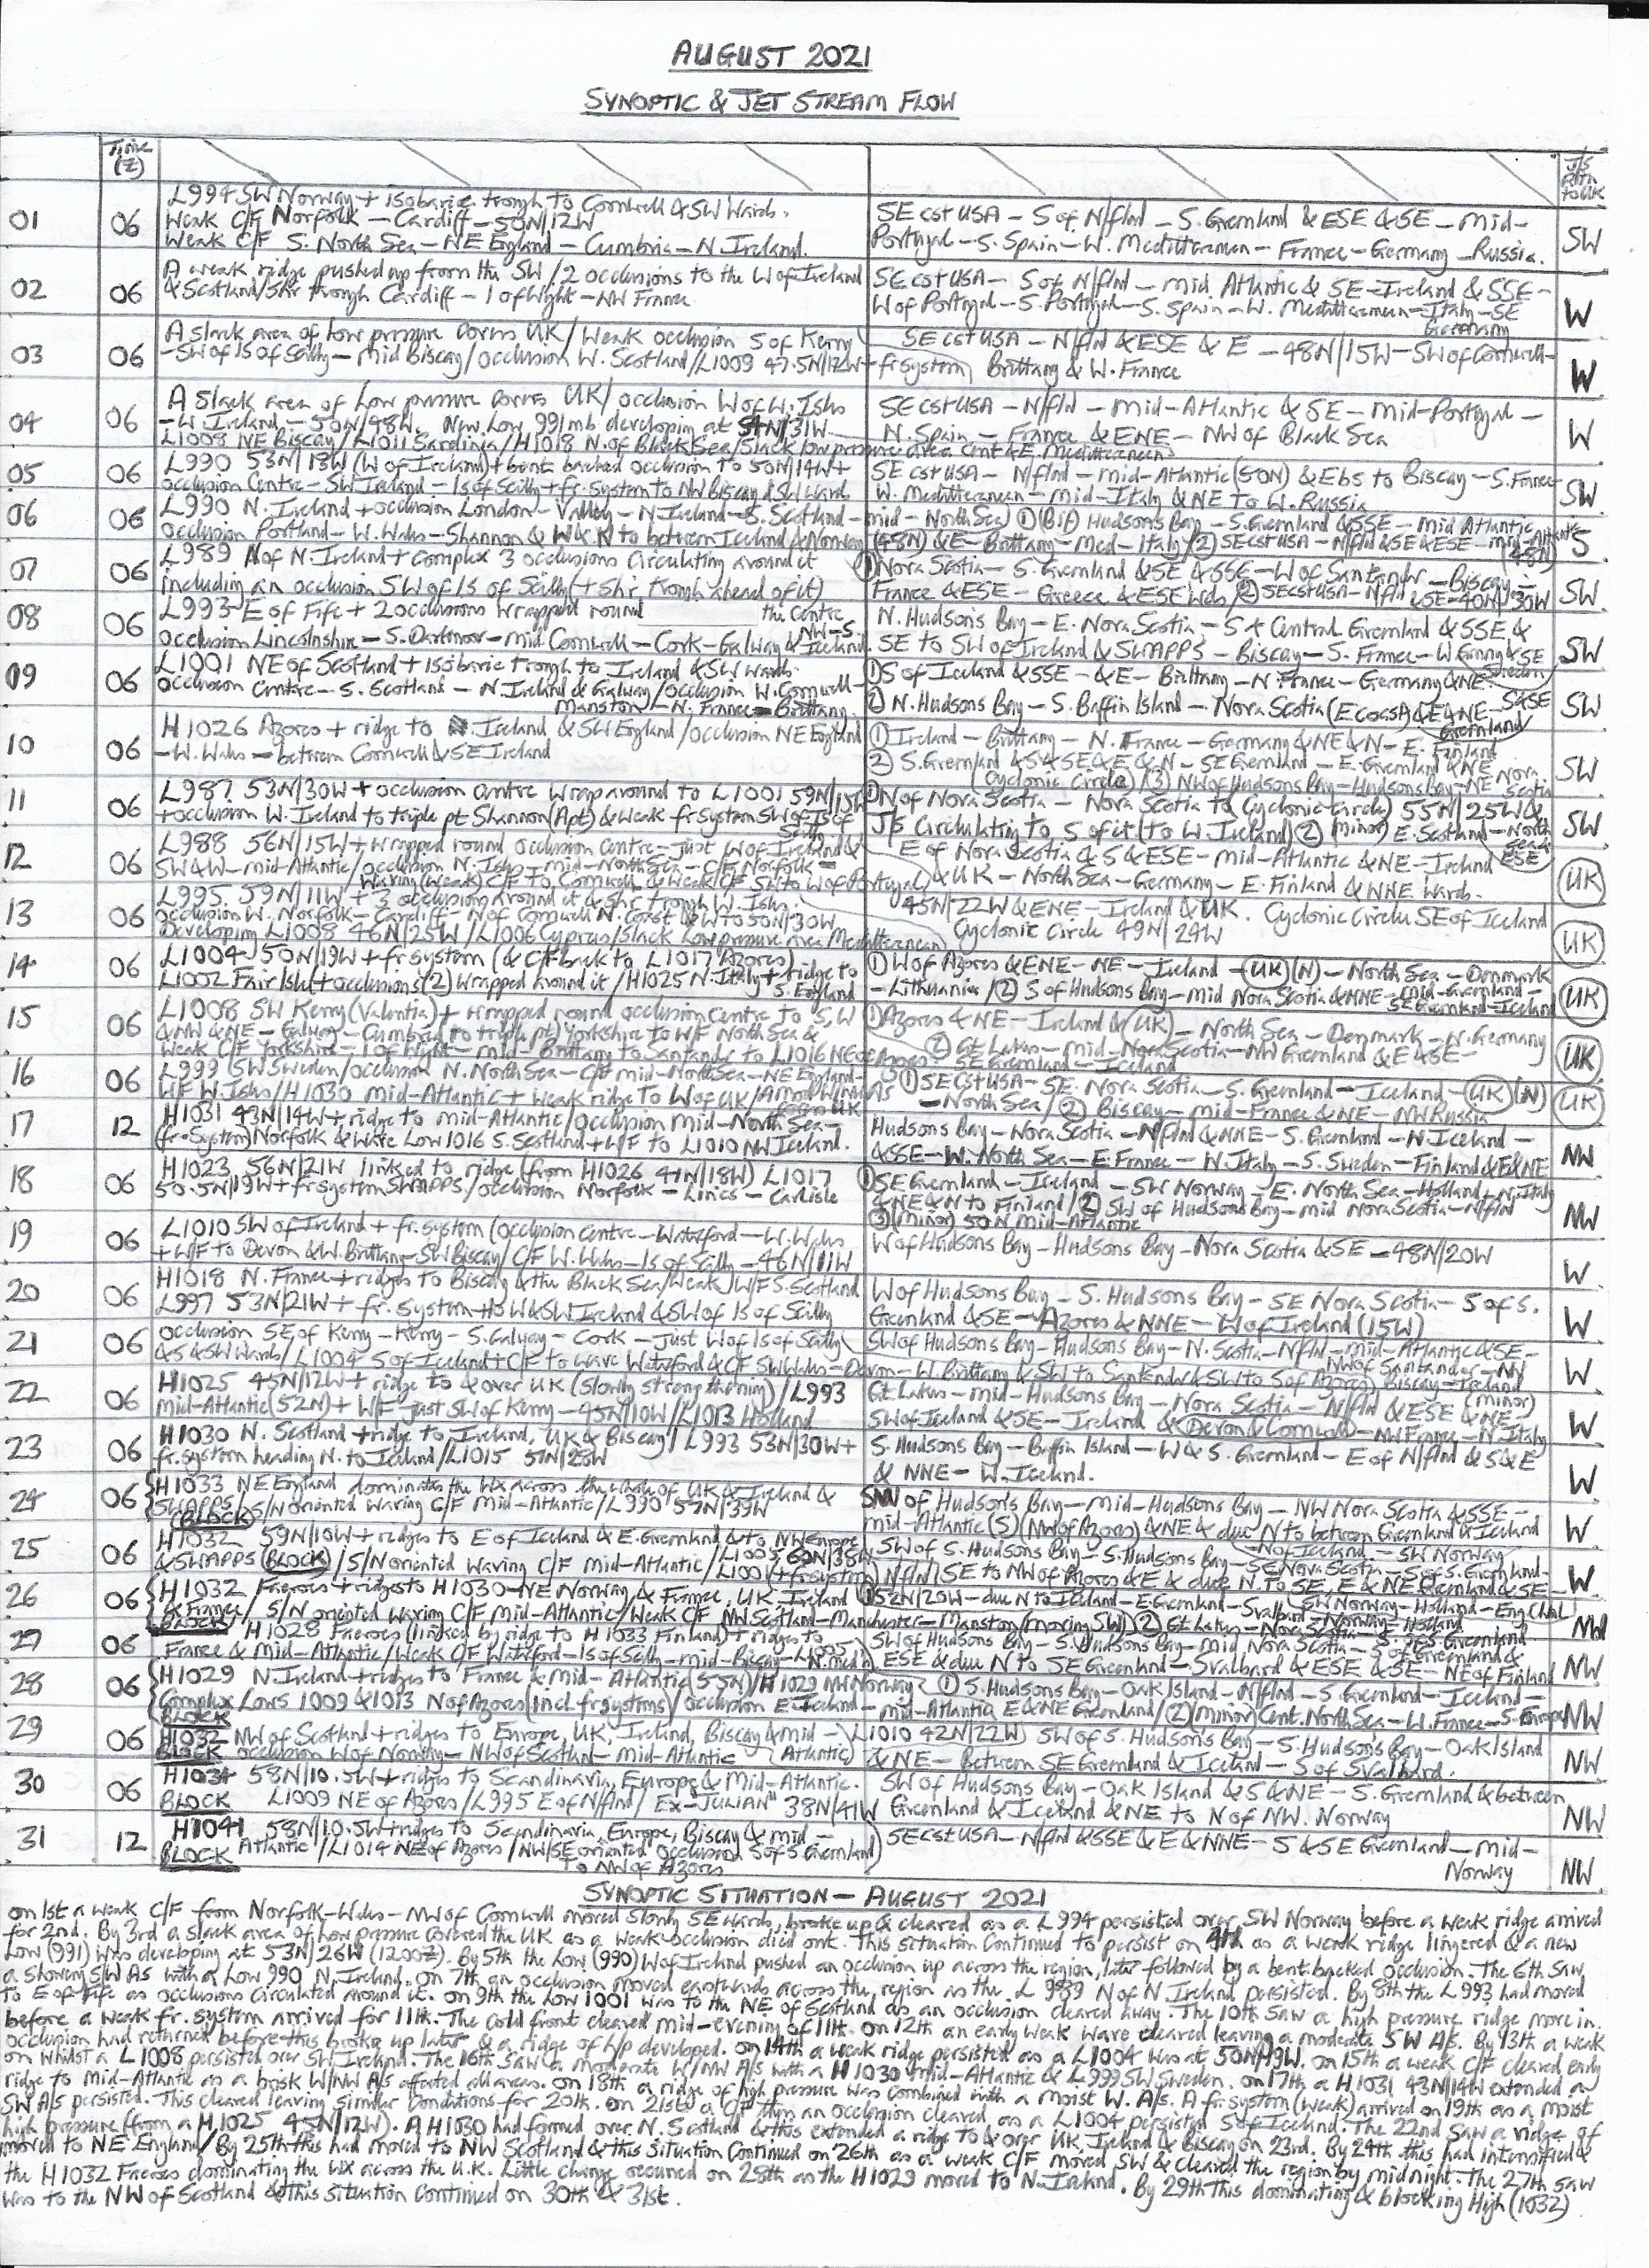 AUGUST 2021
SYNOPTIC & JET STREAM FLOW
Time (Z)
J/S Path to UK
01 06 L994 SW Norway + isobaric trough to Cornwall & SW Wards.
Weak C/F Norfolk - Cardiff - 50N/12W
Weak C/F S. North Sea - NE England - Cumbria - N. Ireland.
SE cst USA - S of N/flnd - S. Greenland & ESE & SE - mid-
Portugal - S. Spain - W. Mediterranean - France - Germany - Russia. SW
02 06 A weak ridge pushed up from the SW / 2 occlusions to the W of Ireland
& Scotland / Shr trough Cardiff - I of Wight - NW France
SE cst USA - S of N/flnd - mid Atlantic & SE - Ireland & SSE -
W of Portugal - S. Portugal - S. Spain - W. Mediterranean - Italy - SE
Germany W
03 06 A slack area of low pressure covers UK / Weak occlusion S of Kerry
- SW of Is of Scilly - mid Biscay / occlusion W. Scotland / L1009 47.5N/12W + fr system
SE cst USA - N/flnd & ESE & E - 48N/15W - SW of Cornwall -
Brittany & W. France W
04 06 A slack area of low pressure covers UK / occlusion W of W. Isles
- W. Ireland - 50N/48W. New Low 991mb developing at 54N/31W
L1008 NE Biscay / L1011 Sardinia / H1018 N. of Black Sea / Slack low pressure area Cent & E. Mediterranean
SE cst USA - N/flnd - mid-Atlantic & SE - mid-Portugal -
N. Spain - France & ENE - NW of Black Sea W
05 06 L990 53N/18W (W of Ireland) + bent backed occlusion to 50N/14W +
occlusion Centre - SW Ireland - Is of Scilly + fr. system to NW Biscay & SW wards
SE cst USA - N/flnd - mid-Atlantic (50N) & Ebs to Biscay - S. France
W. Mediterranean - mid-Italy & NE to W. Russia SW
06 06 L990 N. Ireland + occlusion London - Valley - N. Ireland - S. Scotland - mid - North Sea
occlusion Portland - W. Wales - Shannon & W & N to between Iceland & Norway
① Hudsons Bay - S. Greenland & SSE - mid Atlantic
(48N) & E - Brittany - Med - Italy / ② SE cst USA - N/flnd & SE & ESE - mid-Atlantic (48N) S
07 06 L989 N of N. Ireland + complex 3 occlusions circulating around it
including an occlusion SW of Is of Scilly (+ shr. trough ahead of it)
① Nova Scotia - S. Greenland & SE & SSE - W of Santander - Biscay -
France & ESE - Greece & ESE wds / ② SE cst USA - N/flnd & SE - 40N/30W SW
08 06 L993 E of Fife + 2 occlusions wrapped round the Centre
occlusion Lincolnshire - S. Dartmoor - mid Cornwall - Cork - Galway & NW - S. Iceland.
N. Hudsons Bay - E. Nova Scotia - S & Central Greenland & SSE &
SE to SW of Ireland & SWAPPS - Biscay - S. France - W. Germany & SE Sweden SW
09 06 L1001 NE of Scotland + isobaric trough to Ireland & SW wards.
occlusion Centre - S. Scotland - N. Ireland & Galway / occlusion W. Cornwall -
Manston - N. France - Brittany.
① S of Iceland & SSE - & E - Brittany - N. France - Germany & NE
② N. Hudsons Bay - S. Baffin Island - Nova Scotia (E coast) & E & NE - S & SE Greenland SW
10 06 H1026 Azores + ridge to Ireland & SW England / occlusion NE England
- W. Wales - between Cornwall & SE Ireland
① Ireland - Brittany - N. France - Germany & NE & N - E. Finland
② S. Greenland & S & SE & E & N - SE Greenland - E. Greenland & NE
(Cyclonic Circle) ③ NW of Hudsons Bay - Hudsons Bay - NE Nova Scotia SW
11 06 L987 53N/30W + occlusion Centre wrap around to L1001 59N/15W
+ occlusion W. Ireland to triple pt Shannon (Apt) & weak fr system SW of Is of Scilly
① N of Nova Scotia - Nova Scotia to (Cyclonic Circle) 55N/25W &
J/S circulating to S of it (to W. Ireland) ② (minor) E. Scotland - North Sea & ESE SW
12 06 L988 56N/15W + wrapped round occlusion Centre - just W of Ireland &
SW & W - mid-Atlantic / occlusion N. Isles - mid-North Sea - C/F Norfolk -
Waving (weak) C/F to Cornwall & weak C/F SW to W of Portugal
E of Nova Scotia & S & ESE - mid-Atlantic & NE - Ireland
& UK - North Sea - Germany - E. Finland & NNE wards. UK
13 06 L995 59N/11W + 3 occlusions around it & shr trough W. Isles.
occlusion W. Norfolk - Cardiff - N of Cornwall N. coast & W to 50N/30W
Developing L1008 46N/25W / L1006 Cyprus / Slack low pressure area Mediterranean
45N/22W & ENE - Ireland & UK. Cyclonic Circle SE of Iceland
Cyclonic Circle 49N/24W UK
14 06 L1004 50N/19W + fr system (& C/F back to L1017 Azores)
L1002 Fair Isle + occlusions (2) wrapped around it / H1025 N. Italy + ridge to S. England
① W of Azores & ENE - NE - Ireland - UK (N) - North Sea - Denmark
- Lithuania / ② S of Hudsons Bay - mid Nova Scotia & NNE - mid-Greenland -
SE Greenland - Iceland UK
15 06 L1008 SW Kerry (Valentia) + wrapped round occlusion Centre to S, W
& NW & NE - Galway - Cumbria to triple pt Yorkshire to W/F North Sea &
Weak C/F Yorkshire - I of Wight - mid - Brittany to Santander to L1016 NE of Azores
① Azores & NE - Ireland & UK - North Sea - Denmark - N. Germany
② Gt Lakes - mid - Nova Scotia - NW Greenland & E & SE -
SE Greenland - Iceland UK
16 06 L999 SW Sweden / occlusion N. North Sea - C/F mid - North Sea - NE England -
W/F W. Isles / H1030 mid-Atlantic + weak ridge to W of UK / A mod W/NW A/S across UK
① SE cst USA - SE. Nova Scotia - S. Greenland - Iceland - UK (N)
- North Sea / ② Biscay - mid-France & NE - NW Russia UK
17 12 H1031 43N/14W + ridge to mid-Atlantic / occlusion mid-North Sea -
(fr-system) Norfolk & Wave Low 1016 S. Scotland + W/F to L1010 NW Iceland.
Hudsons Bay - Nova Scotia - N/flnd & NNE - S. Greenland - N. Iceland -
& SSE - W. North Sea - E. France - N. Italy - S. Sweden - Finland & E & NE NW
18 06 H1023 56N/21W linked to ridge (from H1026 41N/18W) L1017
50.5N/19W + fr system SWAPPS / occlusion Norfolk - Lincs - Carlisle
① SE Greenland - Iceland - SW Norway - E. North Sea - Holland - N. Italy
& NE & N to Finland / ② SW of Hudsons Bay - mid Nova Scotia - N/flnd
③ (minor) 50N Mid-Atlantic NW
19 06 L1010 SW of Ireland + fr. system (occlusion Centre - Waterford - W. Wales
+ W/F to Devon & W. Brittany - SW Biscay / C/F W. Wales - Is of Scilly - 46N/11W
W of Hudsons Bay - Hudsons Bay - Nova Scotia & SE - 48N/20W W
20 06 H1018 N. France + ridges to Biscay & the Black Sea / Weak W/F S. Scotland
L997 53N/21W + fr. system to W & SW Ireland & SW of Is of Scilly
W of Hudsons Bay - S. Hudsons Bay - SE Nova Scotia - S of S.
Greenland & SE - Azores & NNE - W of Ireland (15W) W
21 06 Occlusion SE of Kerry - Kerry - S. Galway - Cork - just W of Is of Scilly
& S & SW wards / L1004 S of Iceland + C/F to wave Waterford & C/F SW Wales - Devon - W. Brittany & SW to Santander & SW to S of Azores
SW of Hudsons Bay - Hudsons Bay - N. Scotia - N/flnd - mid-Atlantic & SE -
NW of Santander - NW Biscay - Ireland (minor) W
22 06 H1025 45N/12W + ridge to & over UK (slowly strengthening) / L993
mid-Atlantic (52N) + W/F just SW of Kerry - 45N/10W / L1013 Holland
Gt Lakes - mid - Hudsons Bay - Nova Scotia - N/flnd & ESE & NE -
SW of Iceland & SE - Ireland & Devon & Cornwall - NW France - N. Italy W
23 06 H1030 N. Scotland + ridge to Ireland, UK & Biscay / L993 53N/30W +
fr. system heading N. to Iceland / L1015 51N/28W
S. Hudsons Bay - Baffin Island - W & S. Greenland - E of N/flnd & S & E
& NNE - W. Iceland. W
24 06 H1033 NE England dominates the Wx across the whole of UK & Ireland &
SWAPPS / S/N oriented waving C/F Mid-Atlantic / L990 57N/39W
(BLOCK)
SW of Hudsons Bay - mid-Hudsons Bay - NW Nova Scotia & SSE -
mid-Atlantic (S) (NW of Azores) & NE & due N to between Greenland & Iceland W
25 06 H1032 59N/10W + ridges to E of Iceland & E. Greenland & to NW Europe
& SWAPPS (BLOCK) / S/N oriented waving C/F Mid-Atlantic / L1005 60N/38W
SW of S. Hudsons Bay - S. Hudsons Bay - SE Nova Scotia - S of S. Greenland -
N/flnd / SE to NW of Azores & E & due N to SE, E & NE Greenland & SE - W
26 06 H1032 Faeroes + ridges to H1030 - NE Norway & France, UK, Ireland
& France / S/N oriented waving C/F Mid-Atlantic / Weak C/F NW Scotland - Manchester - Manston (moving SW)
BLOCK
① 52N/20W - due N to Iceland - E. Greenland - Svalbard - SW Norway - Holland - Eng Chnl
② Gt Lakes - Nova Scotia NW
27 06 H1028 Faeroes (linked by ridge to H1033 Finland) + ridges to
France & Mid-Atlantic / Weak C/F Waterford - Is of Scilly - mid-Biscay
SW of Hudsons Bay - S. Hudsons Bay - mid Nova Scotia - S of S Greenland &
ESE & due N to SE Greenland - Svalbard & ESE & SE - NE of Finland NW
28 06 H1029 N. Ireland + ridges to France & Mid-Atlantic (55N) / H1029 NW Norway
Complex Lows 1009 & 1013 N of Azores (incl. fr systems) / occlusion E. Iceland - mid-Atlantic
BLOCK
① S. Hudsons Bay - Oak Island - N/flnd - S. Greenland - Iceland -
E & NE Greenland / ② (minor) Cent. North Sea - W. France - S. Europe NW
29 06 H1032 NW of Scotland + ridges to Europe, UK, Ireland, Biscay & mid - Atlantic / L1010 42N/22W
BLOCK occlusion W of Norway - NW of Scotland - mid-Atlantic
SW of S. Hudsons Bay - S. Hudsons Bay - Oak Island
& NE - Between SE Greenland & Iceland - S of Svalbard. NW
30 06 H1034 58N/10.5W + ridges to Scandinavia, Europe & Mid-Atlantic.
BLOCK L1009 NE of Azores / L995 E of N/flnd / Ex-"JULIAN" 38N/41W
SW of Hudsons Bay - Oak Island & S & NE - S. Greenland & between
Greenland & Iceland & NE to N of NW. Norway NW
31 12 H1041 58N/10.5W + ridges to Scandinavia, Europe, Biscay & mid -
BLOCK Atlantic / L1014 NE of Azores / NW/SE oriented occlusion S of S Greenland
to NW of Azores
SE cst USA - N/flnd & SSE & E & NNE - S & SE Greenland - mid -
Norway NW
SYNOPTIC SITUATION - AUGUST 2021
on 1st a weak C/F from Norfolk - Wales - NW of Cornwall moved slowly SE wards, broke up & cleared as a L994 persisted over SW Norway before a weak ridge arrived
for 2nd. By 3rd a slack area of low pressure covered the UK as a weak occlusion died out. This situation continued to persist on 4th as a weak ridge lingered & a new
Low (991) was developing at 53N/26W (1200Z). By 5th the Low (990) W of Ireland pushed an occlusion up across the region, later followed by a bent backed occlusion. The 6th saw
a showery SW AS with a Low 990 N. Ireland. on 7th an occlusion moved eastwards across the region as the L989 N of N Ireland persisted. By 8th the L993 had moved
to E of Fife as occlusions circulated around it. on 9th the Low 1001 was to the NE of Scotland as an occlusion cleared away. The 10th saw a high pressure ridge move in.
before a weak fr. system arrived for 11th. The cold front cleared mid-evening of 11th. on 12th an early weak wave cleared leaving a moderate SW A/S. By 13th a weak
occlusion had returned before this broke up later & a ridge of h/p developed. on 14th a weak ridge persisted as a L1004 was at 50N/19W. on 15th a weak C/F cleared early
on whilst a L1008 persisted over SW Ireland. The 16th saw a moderate W/NW A/S with a H1030 mid-Atlantic & L999 SW Sweden. on 17th a H1031 43N/14W extended a
ridge to mid-Atlantic as a brisk W/NW A/S affected all areas. on 18th a ridge of high pressure was combined with a moist W. A/S. A fr. system (weak) arrived on 19th as a moist
SW A/S persisted. This cleared leaving similar conditions for 20th. on 21st a C/F then an occlusion cleared as a L1004 persisted S of Iceland. The 22nd saw a ridge of
high pressure (from a H1025 45N/12W). A H1030 had formed over N. Scotland & this extended a ridge to & over UK, Ireland & Biscay on 23rd. By 24th this had intensified &
moved to NE England / By 25th this had moved to NW Scotland & this situation continued on 26th as a weak C/F moved SW & cleared the region by midnight. The 27th saw
the H1032 Faeroes dominating the Wx across the U.K. Little change occurred on 28th as the H1029 moved to N. Ireland. By 29th this dominating & blocking High (1032)
was to the NW of Scotland & this situation continued on 30th & 31st.